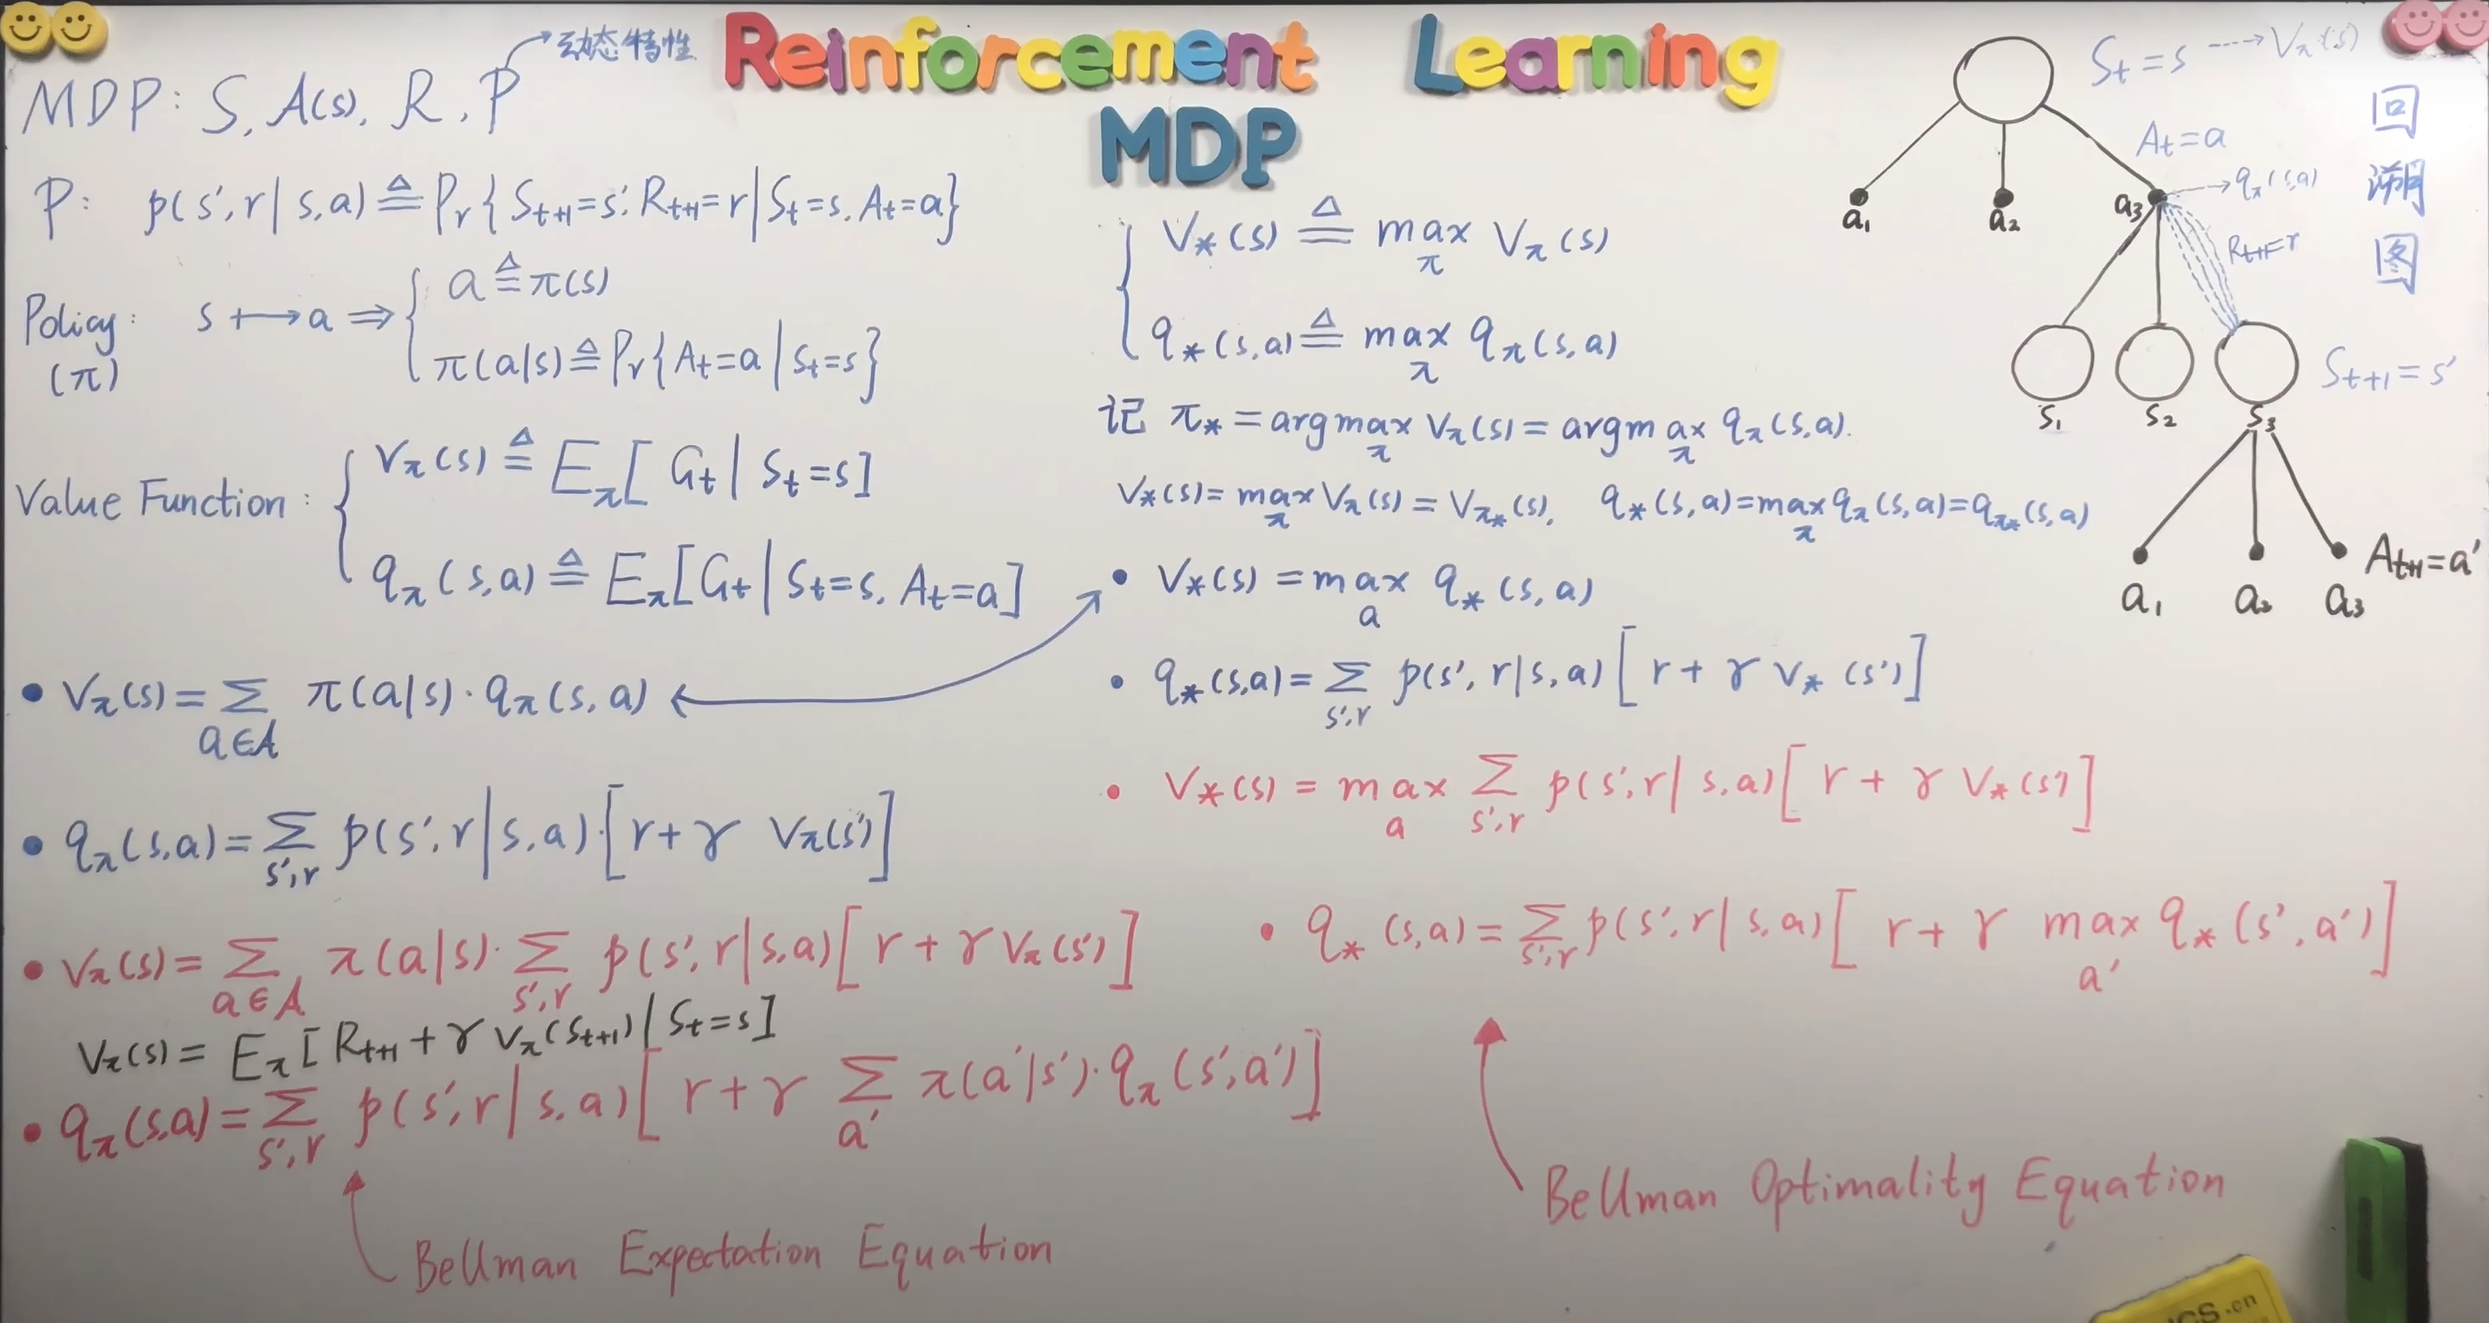 Reinforcement Learning
MDP
MDP: S, A(s), R, P → 动态特性
P: p(s', r | s, a) ≜ Pr{ S_{t+1}=s', R_{t+1}=r | S_t=s, A_t=a }
Policy: (π) s ⟼ a ⇒ { a ≜ π(s)
π(a|s) ≜ Pr{ A_t=a | S_t=s }
Value Function: { V_π(s) ≜ E_π[ G_t | S_t=s ]
q_π(s,a) ≜ E_π[ G_t | S_t=s, A_t=a ]
• V_π(s) = Σ_{a∈A} π(a|s) · q_π(s,a)
• q_π(s,a) = Σ_{s',r} p(s', r | s, a) · [ r + γ V_π(s') ]
• V_π(s) = Σ_{a∈A} π(a|s) · Σ_{s',r} p(s', r | s, a) [ r + γ V_π(s') ]
V_π(s) = E_π[ R_{t+1} + γ V_π(S_{t+1}) | S_t=s ]
• q_π(s,a) = Σ_{s',r} p(s', r | s, a) [ r + γ Σ_{a'} π(a'|s') · q_π(s',a') ]
Bellman Expectation Equation
{ V_*(s) ≜ max_π V_π(s)
q_*(s,a) ≜ max_π q_π(s,a)
记 π_* = argmax_π V_π(s) = argmax_π q_π(s,a).
V_*(s) = max_π V_π(s) = V_{π_*}(s), q_*(s,a) = max_π q_π(s,a) = q_{π_*}(s,a)
• V_*(s) = max_a q_*(s,a)
• q_*(s,a) = Σ_{s',r} p(s', r | s, a) [ r + γ V_*(s') ]
• V_*(s) = max_a Σ_{s',r} p(s', r | s, a) [ r + γ V_*(s') ]
• q_*(s,a) = Σ_{s',r} p(s', r | s, a) [ r + γ max_{a'} q_*(s',a') ]
Bellman Optimality Equation
S_t=s ⇢ V_π(s)
回溯图
A_t=a
a₁ a₂ a₃ → q_π(s,a)
R_{t+1}=r
S_{t+1}=s'
s₁ s₂ s₃
A_{t+1}=a'
a₁ a₂ a₃